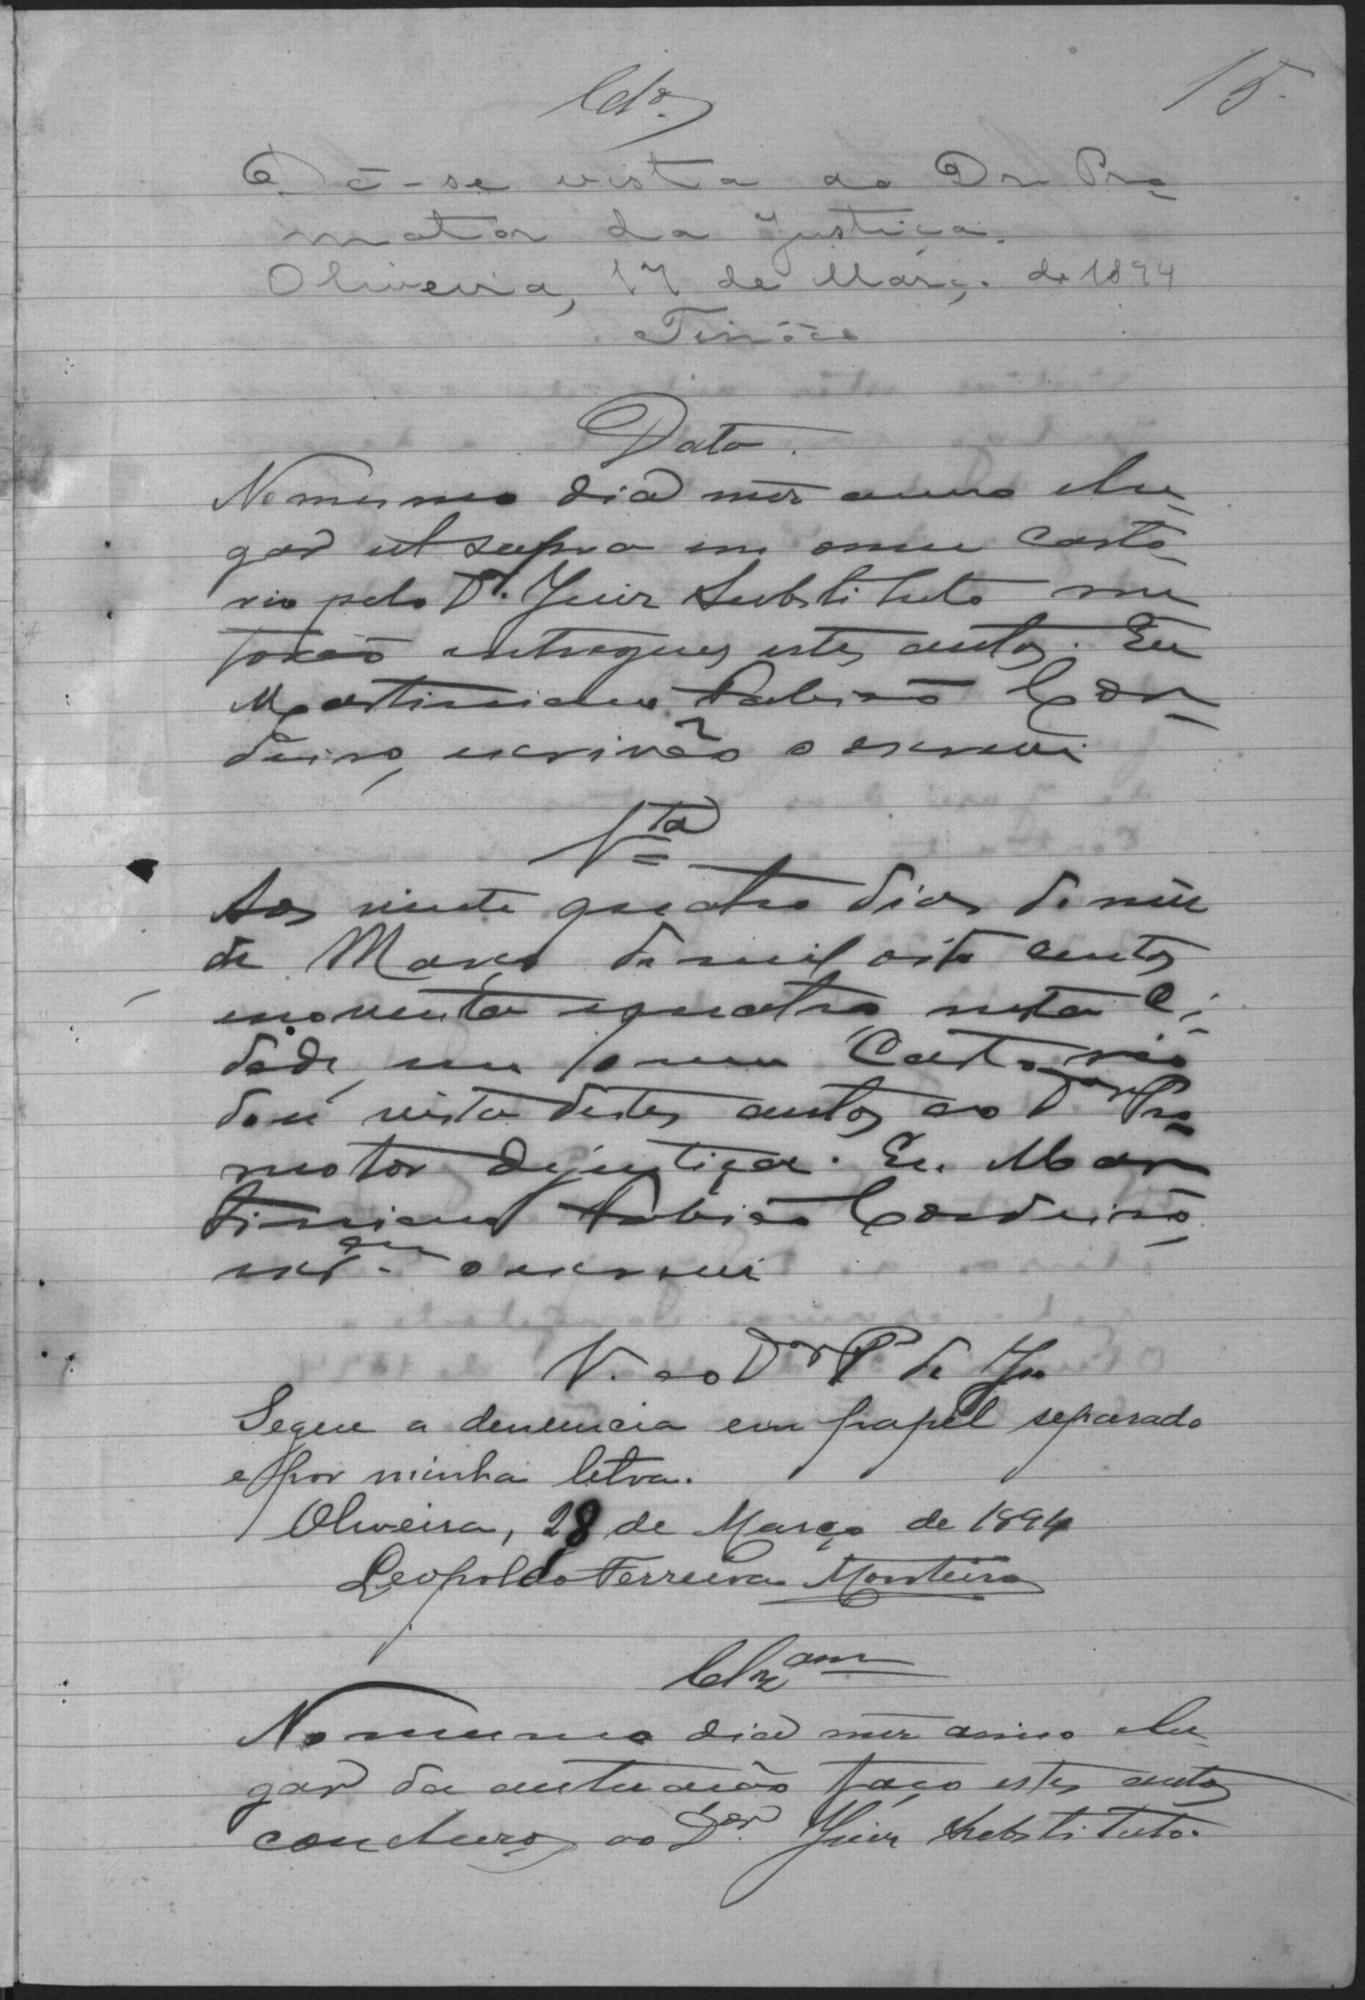 15.
Clos.
Dê-se vista ao Dr. Pro-
motor da Justiça.
Oliveira, 17 de Março de 1894
Tinôco
Data.
No mesmo dia mez anno e lu-
gar ut supra em o meu carto-
rio pelo Dr. Juiz Substituto me
forão entregues estes autos. Eu
Martiniano Fabião Cor-
deiro, escrivão o escrevi
Vta
Aos vinte quatro dias do mez
de Março de mil oito centos
e noventa e quatro nesta Ci-
dade em o meu Cartorio
dou vista destes autos ao Dor Pro-
motor de justiça. Eu Mar
tiniano Fabião Cordeiro
escram o escrevi
V. ao Dor P. de Jça
Segue a denuncia em papel separado
e por minha letra.
Oliveira, 28 de Março de 1894
Leopoldo Ferreira Monteiro
Clzam
No mesmo dia mez anno e lu-
gar da autuação faço estes autos
concluzos ao Dor Juiz Substituto.